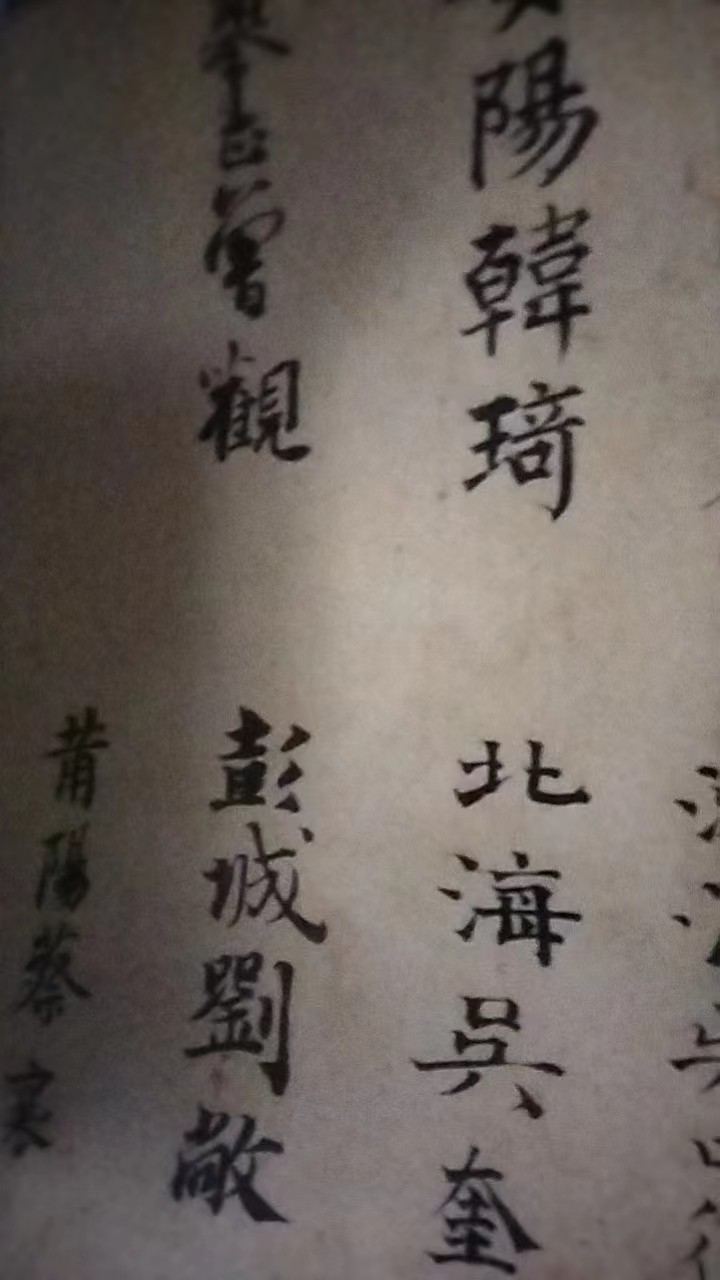 陽韓琦
北海吳奎
舉正曾觀
彭城劉敞
莆陽蔡襄